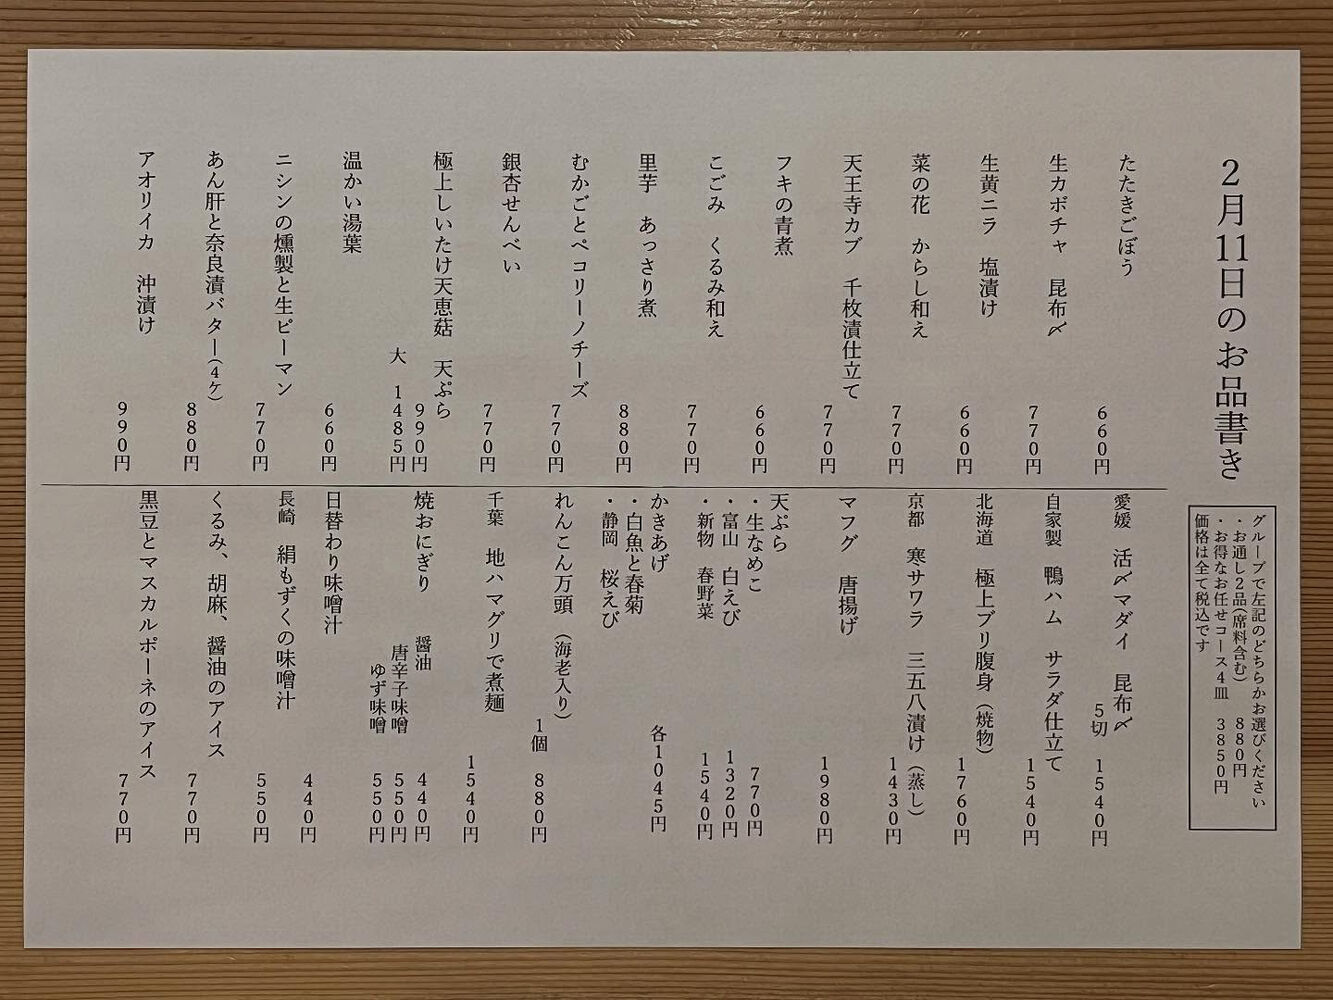 2月11日のお品書き
グループで左記のどちらかお選びください
・お通し2品(席料含む) 880円
・お得なお任せコース4皿 3850円
価格は全て税込です
たたきごぼう 660円
生カボチャ 昆布〆 770円
生黄ニラ 塩漬け 660円
菜の花 からし和え 770円
天王寺カブ 千枚漬仕立て 770円
フキの青煮 660円
こごみ くるみ和え 770円
里芋 あっさり煮 880円
むかごとペコリーノチーズ 770円
銀杏せんべい 770円
極上しいたけ天恵菇 天ぷら 990円
大 1485円
温かい湯葉 660円
ニシンの燻製と生ピーマン 770円
あん肝と奈良漬バター(4ケ) 880円
アオリイカ 沖漬け 990円
愛媛 活〆マダイ 昆布〆
5切 1540円
自家製 鴨ハム サラダ仕立て 1540円
北海道 極上ブリ腹身(焼物) 1760円
京都 寒サワラ 三五八漬け(蒸し) 1430円
マフグ 唐揚げ 1980円
天ぷら
・生なめこ 770円
・富山 白えび 1320円
・新物 春野菜 1540円
かきあげ 各1045円
・白魚と春菊
・静岡 桜えび
れんこん万頭(海老入り)
1個 880円
千葉 地ハマグリで煮麺 1540円
焼おにぎり 醤油 440円
唐辛子味噌 550円
ゆず味噌 550円
日替わり味噌汁 440円
長崎 絹もずくの味噌汁 550円
くるみ、胡麻、醤油のアイス 770円
黒豆とマスカルポーネのアイス 770円